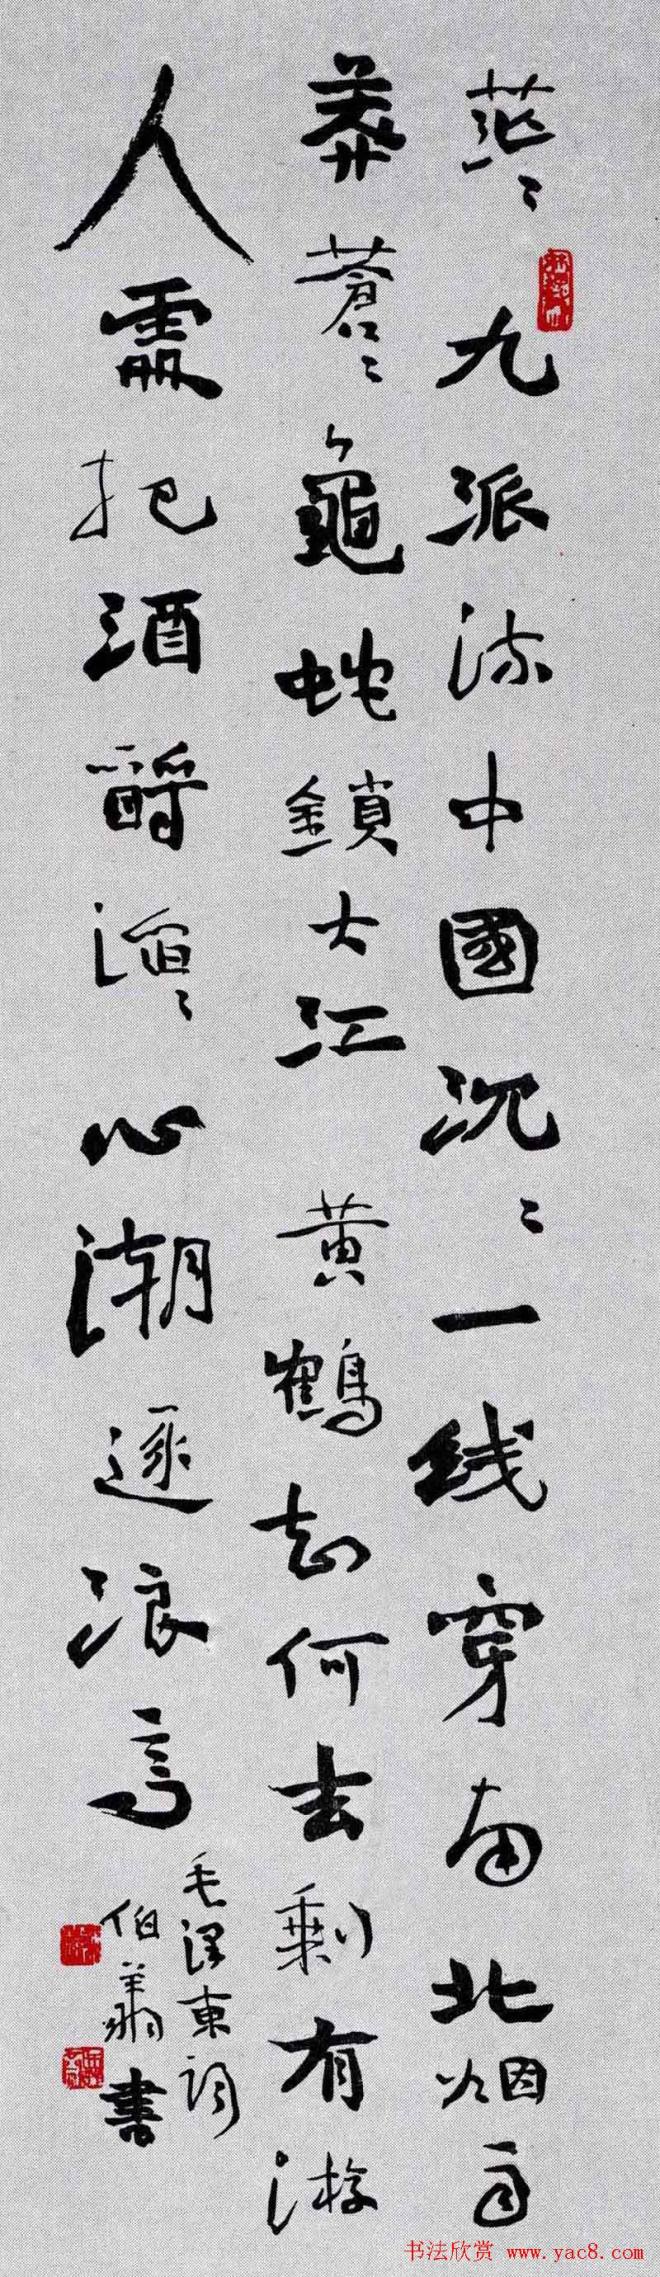 茫々九派流中國沉々一线穿南北烟雨
莽蒼々龜蛇鎖大江黄鶴知何去剩有游
人處把酒酹滔々心潮逐浪高
毛澤東詞
伯書
书法欣赏 www.yac8.com